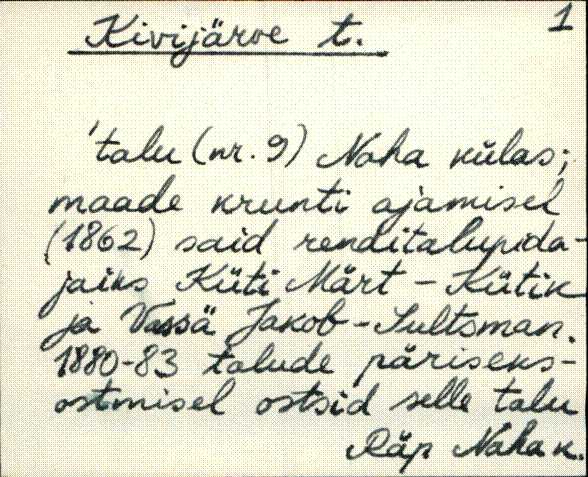 1
Kivijärve t.
'talu (nr. 9) Naha külas;
maade krunti ajamisel
(1862) said renditalupida-
jaiks Küti Märt - Kütik
ja Vassä Jakob - Sultsman.
1880-83 talude päriseks-
ostmisel ostsid selle talu
Räp Naha k.